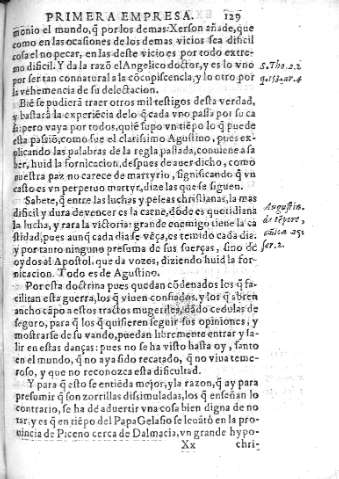 PRIMERA EMPRESA. 129
monio el mundo, q̃ por los demas: Xerson añade, que
como en las ocasiones de los demas vicios sea dificil
cosa el no pecar, en las deste vicio es por todo extre-
mo dificil. Y da la razõ el Angelico doctor, y es lo vno
por ser tan connatural a la cõcupiscencia, y lo otro por
la vehemencia de su delectacion.
S. Tho. 2.2
q. 154. ar. 4
Biẽ se pudierã traer otros mil testigos desta verdad,
y bastarà la experiẽcia de lo q̃ cada vno passa por su ca
sa: pero vaya por todos, quiẽ supo vn tiẽpo lo q̃ puede
esta passiõ, como fue el clarissimo Agustino, pues ex-
plicando las palabras de la regla passada, conuiene a sa
ber, huid la fornicacion, despues de auer dicho, como
nuestra paz no carece de martyrio, significando q̃ vn
casto es vn perpetuo martyr, dize las que se siguen.
Sabete, q̃ entre las luchas y peleas christianas, la mas
dificil y dura de vencer es la carne, dõde es quotidiana
la lucha, y rara la victoria: grande enemigo tiene la ca
stidad, pues aunq̃ cada dia se vẽça, es temido cada dia,
y por tanto ninguno presuma de sus fuerças, sino de
oydos al Apostol, que da vozes, diziendo huid la for-
nicacion. Todo es de Agustino.
Augustin.
de tẽpore,
ser. 2.
Por esta doctrina pues quedan cõdenados los q̃ fa-
cilitan esta guerra, los q̃ viuen confiados, y los q̃ abren
ancho cãpo a estos tractos mugeriles, dãdo cedulas de
seguro, para q̃ los q̃ quisieren seguir sus opiniones, y
mostrarse de su vando, puedan libremente entrar y sa-
lir en estas danças: pues no se ha visto hasta oy, santo
en el mundo, q̃ no aya sido recatado, q̃ no viua teme-
roso, y que no reconozca esta dificultad.
Y para q̃ esto se entiẽda mejor, y la razon, q̃ ay para
presumir q̃ son zorrillas dissimuladas, los q̃ enseñan lo
contrario, se ha de aduertir vna cosa bien digna de no
tar, y es q̃ en tiẽpo del Papa Gelasio se leuãtò en la pro
uincia de Piceno cerca de Dalmacia, vn grande hypo-
Xx chri-